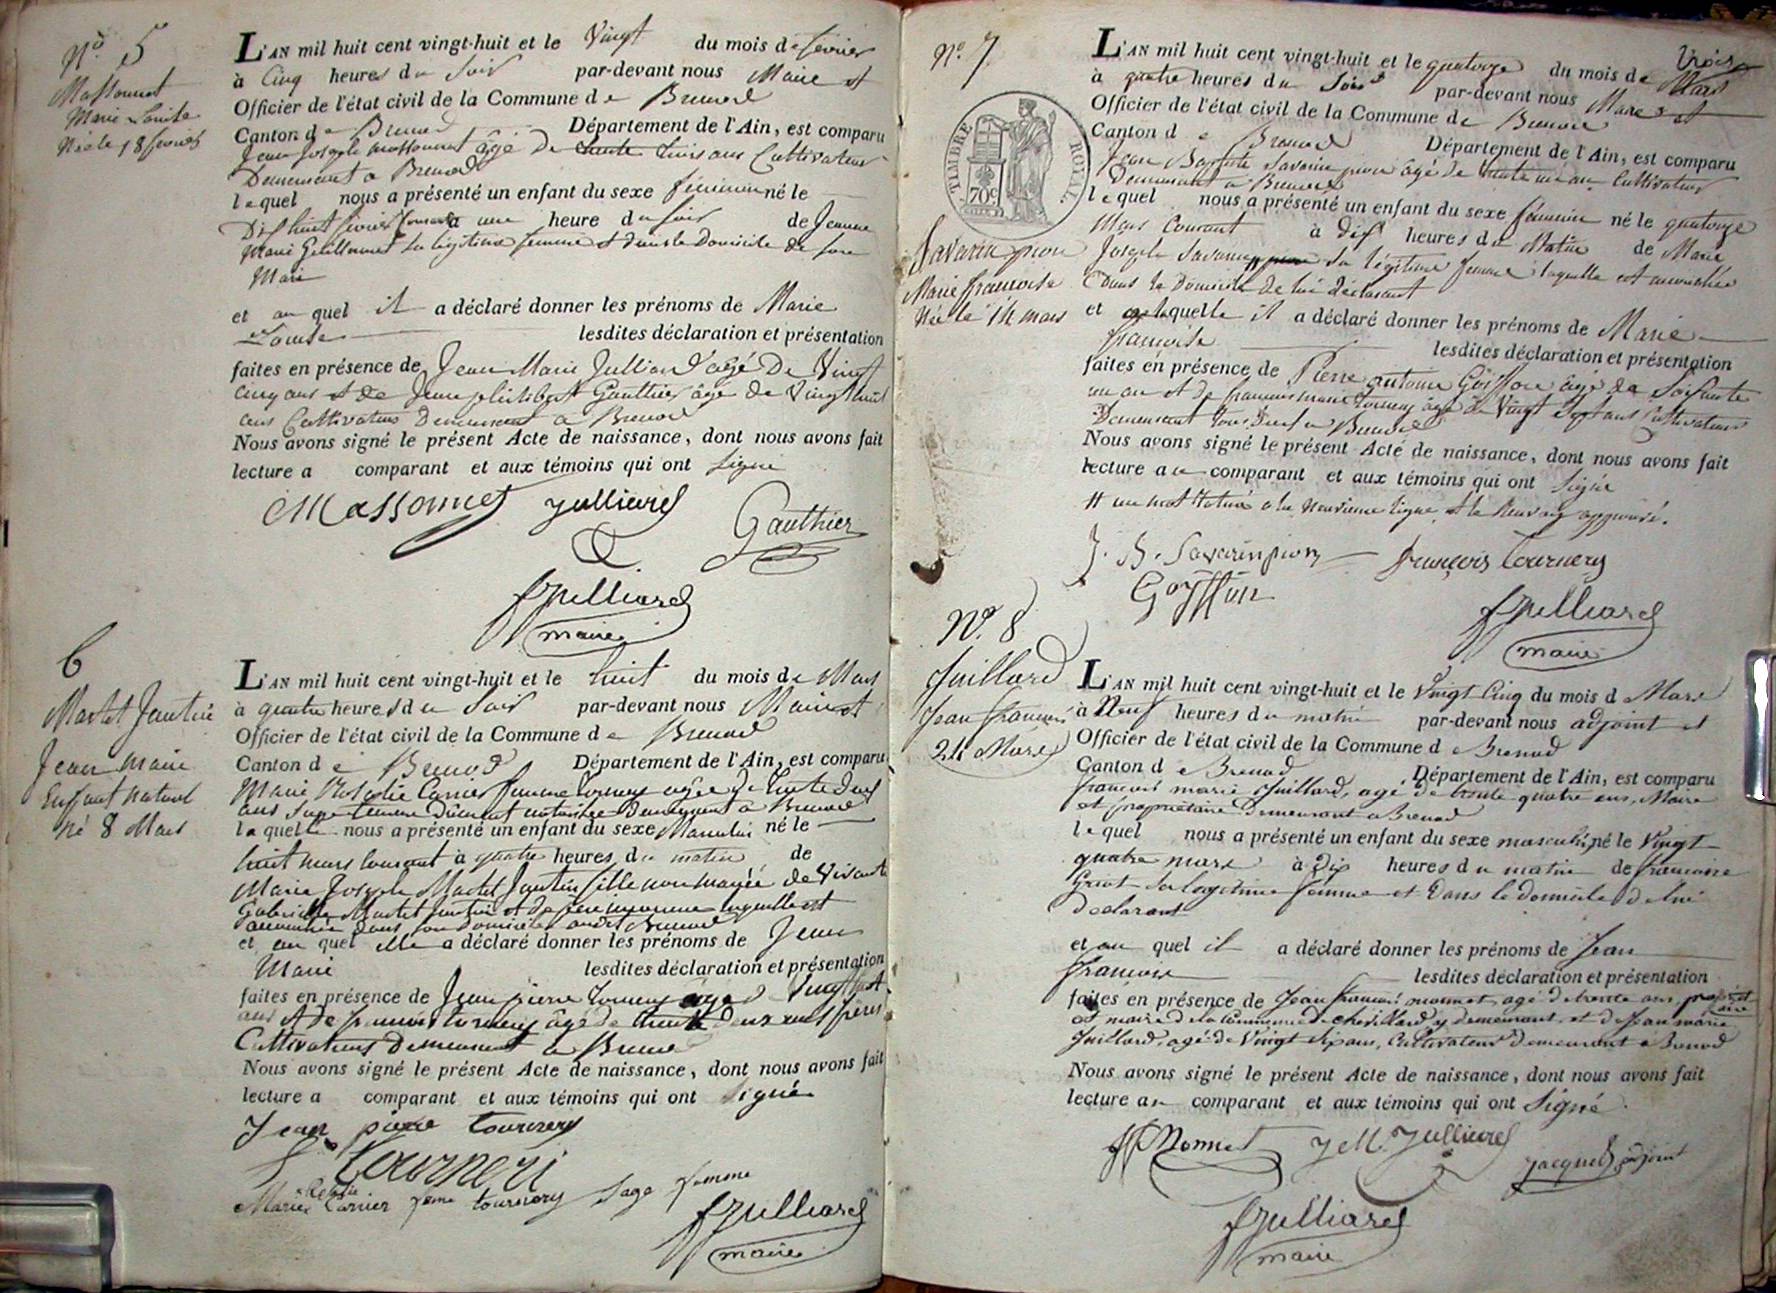 N.º 5
Massonnet
Marie Louise
Née le 18 février
L'AN mil huit cent vingt-huit et le Vingt du mois de février
à Cinq heures du Soir par-devant nous Maire et
Officier de l'état civil de la Commune de Brenod
Canton de Brenod Département de l'Ain, est comparu
Jean Joseph Massonnet âgé de trente trois ans Cultivateur
Demeurant à Brenod
lequel nous a présenté un enfant du sexe féminin né le
Dix huit février courant à une heure du Soir de Jeanne
Marie Guillermet sa légitime femme et dans le Domicile de son
Mari
et au quel il a déclaré donner les prénoms de Marie
Louise lesdites déclaration et présentation
faites en présence de Jean Marie Jullierd âgé De Vingt
cinq ans et de Jean philibert Gauthier âgé de Vingt huit
ans Cultivateurs Demeurant à Brenod
Nous avons signé le présent Acte de naissance, dont nous avons fait
lecture a comparant et aux témoins qui ont Signé
Massonnet Jullierd Gauthier
Jullierd
maire
6
Martet Jantin
Jean Marie
Enfant naturel
né 8 Mars
L'AN mil huit cent vingt-huit et le huit du mois de Mars
à quatre heures du Soir par-devant nous Maire et
Officier de l'état civil de la Commune de Brenod
Canton de Brenod Département de l'Ain, est comparu
Marie Rosalie Carrier femme Tournery agée de trente deux
ans Sage femme Demeurant à Brenod
laquelle nous a présenté un enfant du sexe Masculin né le
huit mars courant à quatre heures du matin de
Marie Josephe Martet Jantin fille non mariée de Vivant
Gabriel Martet Jantin et de père inconnu laquelle est
accouchée dans son Domicile audit Brenod
et au quel elle a déclaré donner les prénoms de Jean
Marie lesdites déclaration et présentation
faites en présence de Jean pierre Tournery âgé de Vingt huit
ans et de françois tournery âgé de trente deux ans frères
Cultivateurs Demeurant à Brenod
Nous avons signé le présent Acte de naissance, dont nous avons fait
lecture a comparant et aux témoins qui ont Signé
Jean pierre tournery
tournery
Marie Rosalie Carrier feme tournery Sage femme
Jullierd
maire
N.º 7
TIMBRE ROYAL
70c
Savarin pion
Marie françoise
Née le 14 mars
L'AN mil huit cent vingt-huit et le quatorze du mois de Mars
à quatre heures du Soir par-devant nous Maire et
Officier de l'état civil de la Commune de Brenod
Canton de Brenod Département de l'Ain, est comparu
Jean Baptiste Savarin pion âgé de trente un an Cultivateur
Demeurant à Brenod
lequel nous a présenté un enfant du sexe féminin né le quatorze
Mars Courant à dix heures du Matin de Marie
Josephe Savarin sa légitime femme laquelle est accouchée
Dans le Domicile de lui déclarant
et a laquelle il a déclaré donner les prénoms de Marie
françoise lesdites déclaration et présentation
faites en présence de Pierre antoine Goiffon âgé de Soixante
un an et de françois tournery âgé de Vingt Sept ans Cultivateurs
Demeurant tous Deux à Brenod
Nous avons signé le présent Acte de naissance, dont nous avons fait
lecture au comparant et aux témoins qui ont Signé
# un mot à la neuvieme ligne et le Renvoi approuvé.
J. B. Savarin pion françois tournery
Goyffon
Jullierd
maire
N.º 8
Juillard
Jean françois
24 Mars
L'AN mil huit cent vingt-huit et le Vingt Cinq du mois de Mars
à Neuf heures du matin par-devant nous adjoint et
Officier de l'état civil de la Commune de Brenod
Canton de Brenod Département de l'Ain, est comparu
françois marie Juillard, agé de trente quatre ans, Maire
et propriétaire Demeurant à Brenod
lequel nous a présenté un enfant du sexe masculin né le Vingt
quatre mars à Dix heures du matin de françoise
Griot Sa légitime femme et Dans le domicile de lui
declarant
et au quel il a déclaré donner les prénoms de Jean
françois lesdites déclaration et présentation
faites en présence de Jean françois monnet, agé de trente ans, propriétaire
et maire de la Commune de Chevillard y demeurant, et de Jean marie
Juillard, agé de Vingt Six ans, Cultivateur demeurant a Brenod
Nous avons signé le présent Acte de naissance, dont nous avons fait
lecture au comparant et aux témoins qui ont Signé.
Monnet J M Jullierd Jacquet adjoint
Jullierd
maire